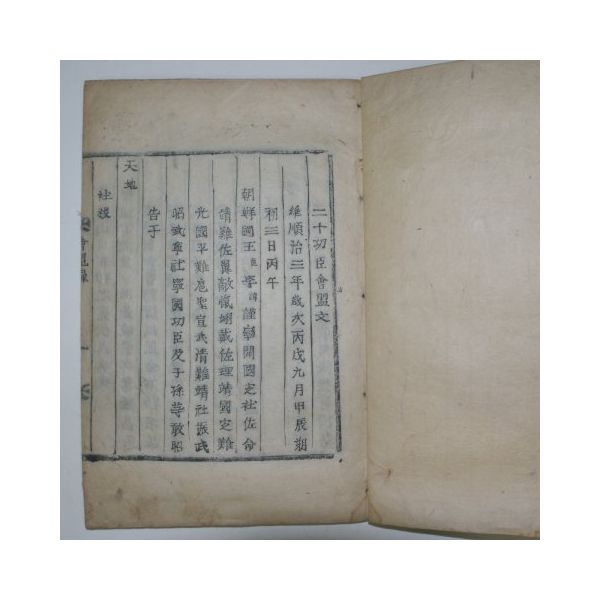 二十功臣會盟文
維順治三年歲次丙戌九月甲辰朔
初三日丙午
朝鮮國王臣李諱謹率開國定社佐命
靖難佐翼敵愾翊戴佐理靖國定難
光國平難扈聖宣武清難靖社振武
昭武寧社寧國功臣及子孫等敢昭
告于
天地
社稷
會盟錄
一